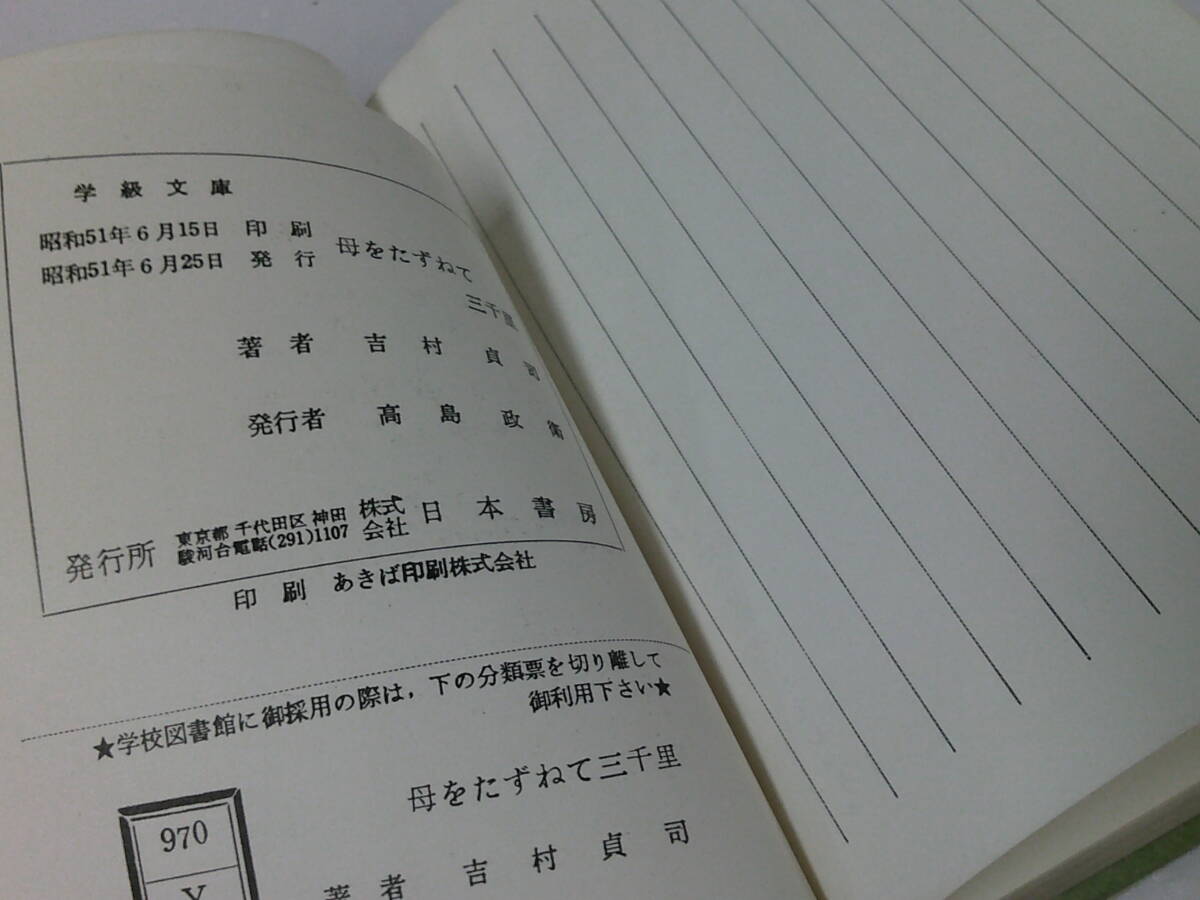 学級文庫
昭和51年6月15日 印刷
昭和51年6月25日 発行
母をたずねて
三千里
著者 吉村貞司
発行者 髙島政衛
発行所 東京都千代田区神田
駿河台電話(291)1107
株式
会社
日本書房
印刷 あきば印刷株式会社
★学校図書館に御採用の際は,下の分類票を切り離して
御利用下さい★
母をたずねて三千里
著者 吉村貞司
970
Y